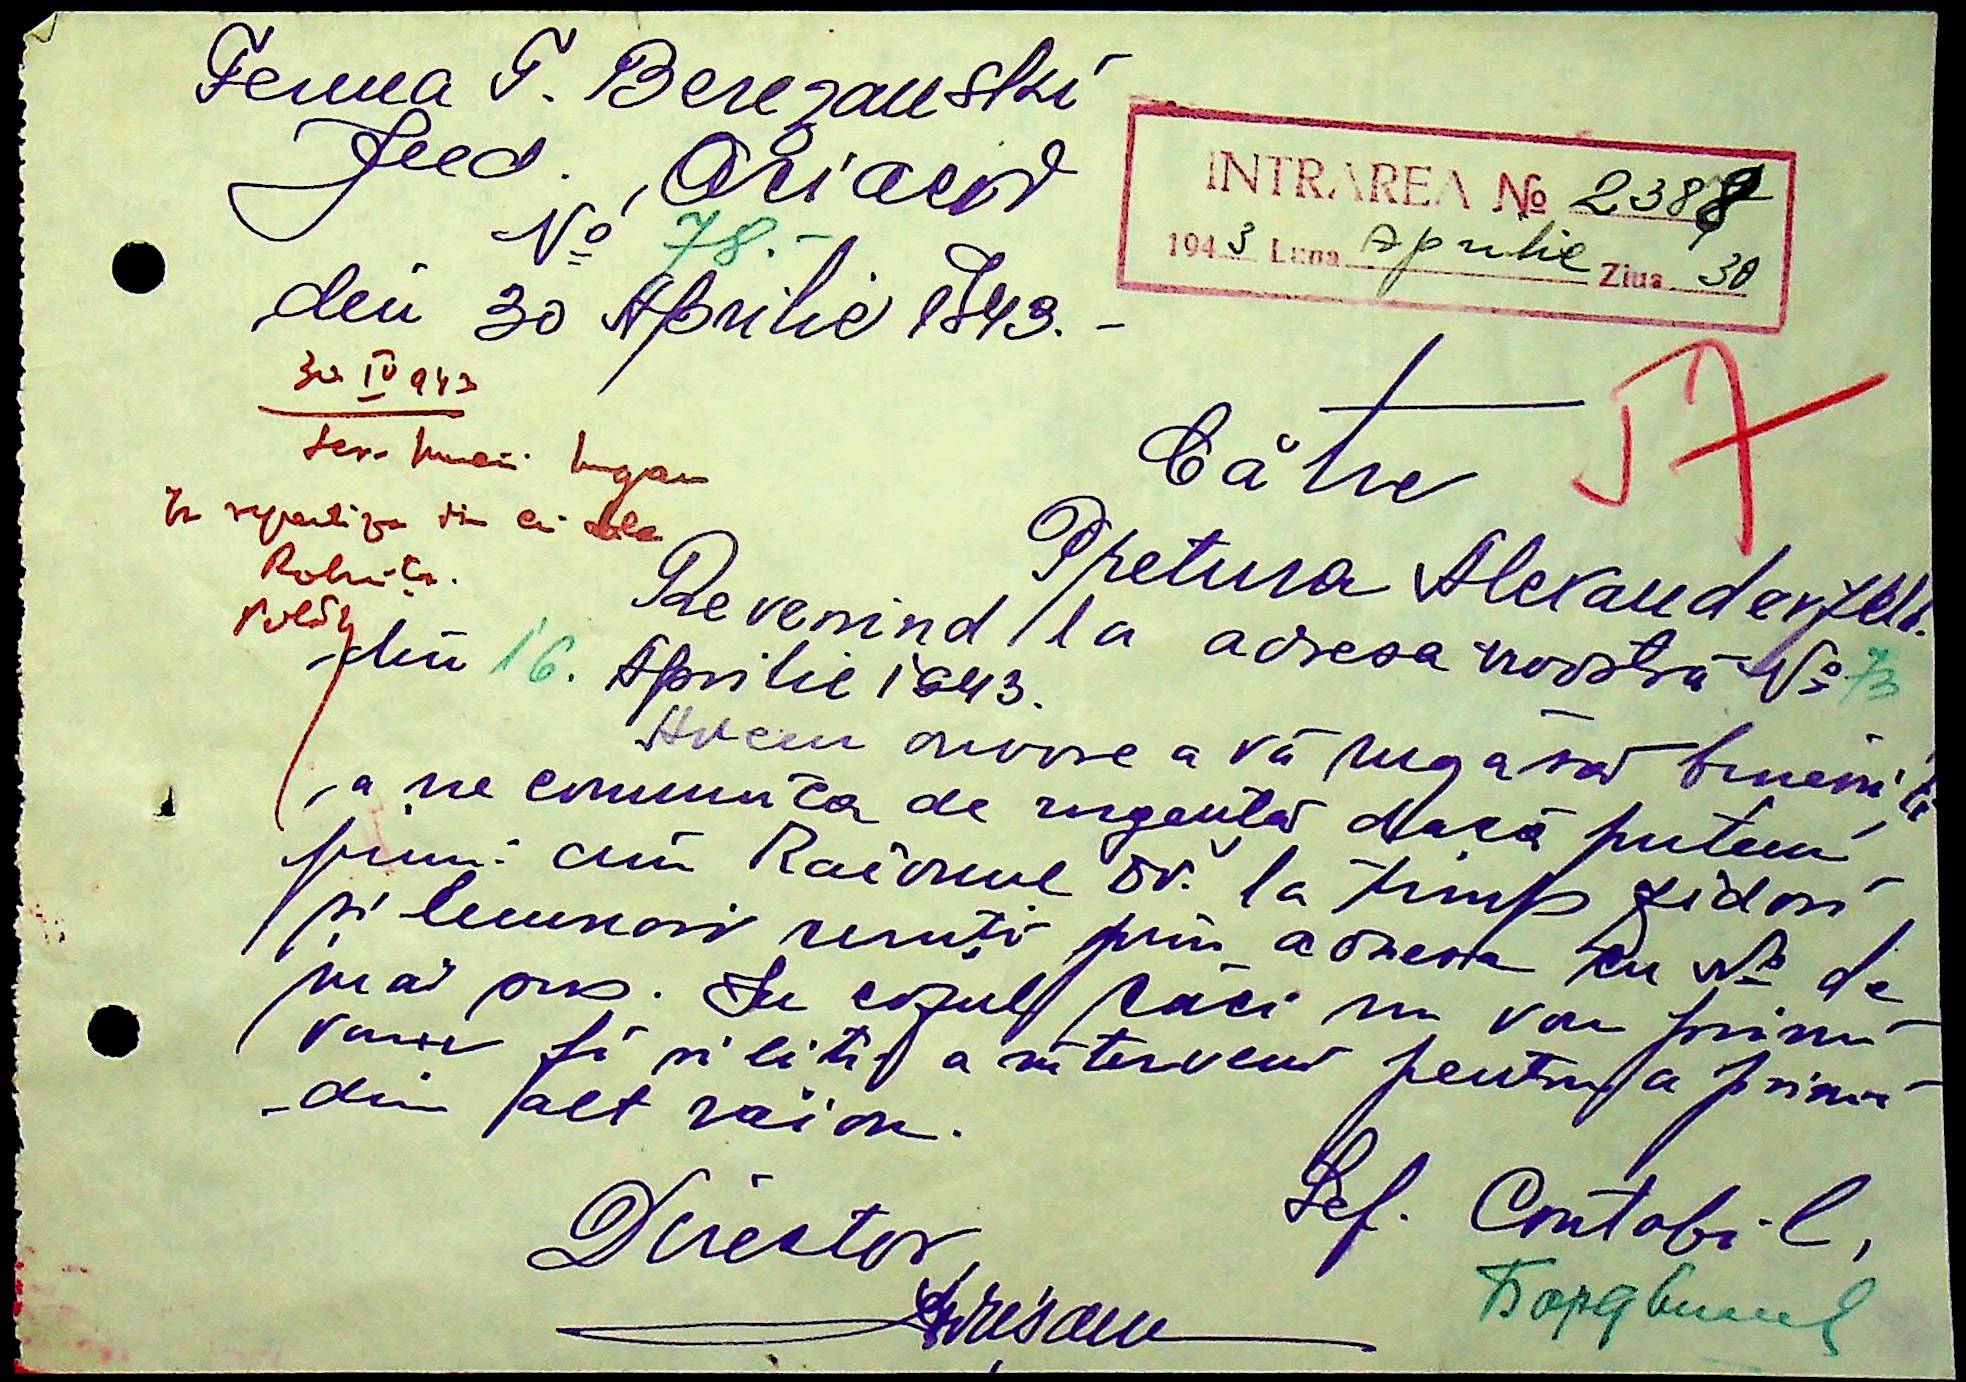 Ferma T. Berezanski
Jud. Oceacov
No 78.-
din 30 Aprilie 1943.-
INTRAREA No 2388
1943 Luna Aprilie Ziua 30
30 IV 943
57
Către
Ppretura Alexanderfeld.
Revenind la adresa noastră No 73
din 16. Aprilie 1943.
Avem onoare a vă ruga să binevoiți
a ne comunica de urgență dacă putem
primi din Raionul Dv. la timp jidovi
și lemnari ceruți prin adresa cu No de
mai sus. In cazul căci nu vom primi
vom fi siliti a interveni pentru a primi
din alt raion.
Director,
Șef. Contabil,